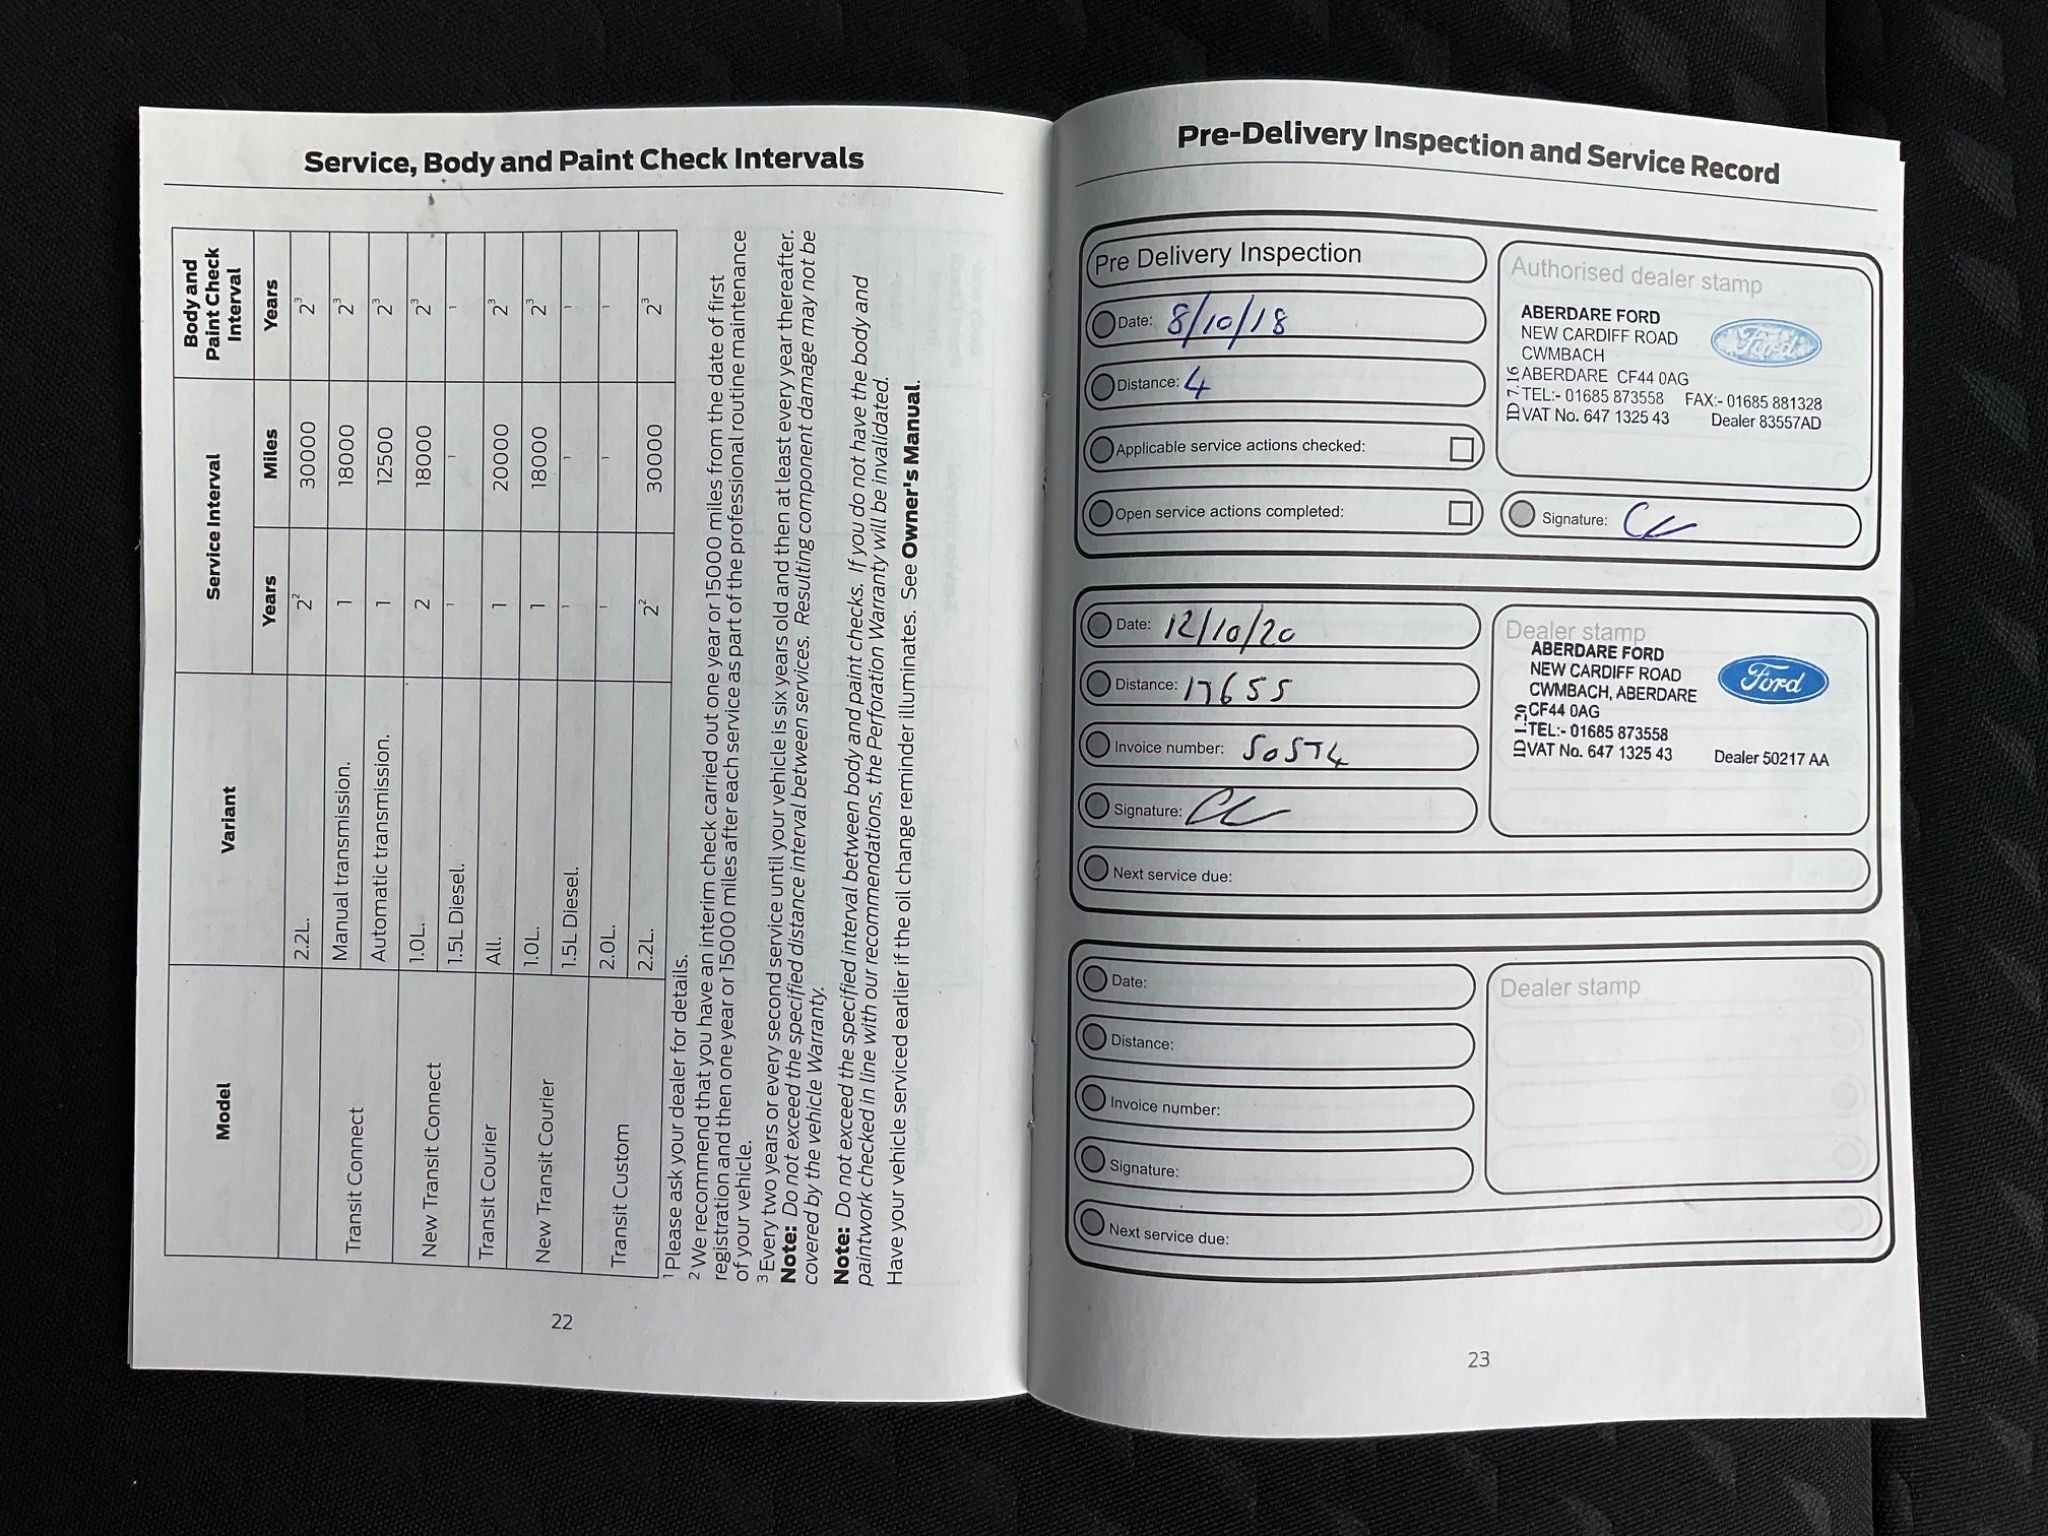 Service, Body and Paint Check Intervals
Model Variant Service Interval Body and Paint Check Interval
Years Miles Years
2.2L. 2² 30000 2³
Transit Connect Manual transmission. 1 18000 2³
Automatic transmission. 1 12500 2³
New Transit Connect 1.0L. 2 18000 2³
1.5L Diesel. 1 1 1
Transit Courier All. 1 20000 2³
New Transit Courier 1.0L. 1 18000 2³
1.5L Diesel. 1 1 1
Transit Custom 2.0L. 1 1 1
2.2L. 2² 30000 2³
¹ Please ask your dealer for details.
² We recommend that you have an interim check carried out one year or 15000 miles from the date of first
registration and then one year or 15000 miles after each service as part of the professional routine maintenance
of your vehicle.
³ Every two years or every second service until your vehicle is six years old and then at least every year thereafter.
Note: Do not exceed the specified distance interval between services. Resulting component damage may not be
covered by the vehicle Warranty.
Note: Do not exceed the specified interval between body and paint checks. If you do not have the body and
paintwork checked in line with our recommendations, the Perforation Warranty will be invalidated.
Have your vehicle serviced earlier if the oil change reminder illuminates. See Owner's Manual.
22
Pre-Delivery Inspection and Service Record
Pre Delivery Inspection
Date: 8/10/18
Distance: 4
Applicable service actions checked:
Open service actions completed:
Authorised dealer stamp
ABERDARE FORD
NEW CARDIFF ROAD
CWMBACH
ABERDARE CF44 0AG
TEL:- 01685 873558 FAX:- 01685 881328
VAT No. 647 1325 43 Dealer 83557AD
ID 7.16
Ford
Signature:
Date: 12/10/20
Distance: 17655
Invoice number:
Signature:
Next service due:
Dealer stamp
ABERDARE FORD
NEW CARDIFF ROAD
CWMBACH, ABERDARE
CF44 0AG
TEL:- 01685 873558
VAT No. 647 1325 43 Dealer 50217 AA
ID 1.20
Ford
Date:
Distance:
Invoice number:
Signature:
Next service due:
Dealer stamp
23